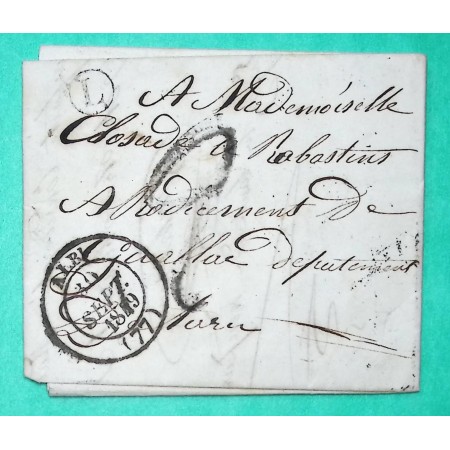 L
A Mademoiselle
Closade a Rabastins
2
A Rodicement De
Gaallac departement
Tarn
ALBI
SEPT.
1849
(77)